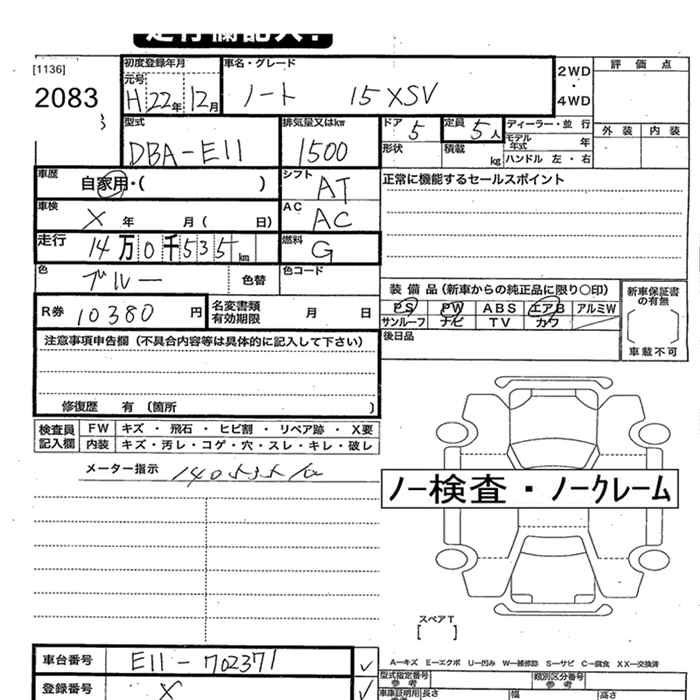 走行欄記入!
[1136]
2083
初度登録年月
元号
H 22年 12月
車名・グレード
ノート 15XSV
2WD
・
4WD
評価点
外装 内装
型式
DBA-E11
排気量又はkw
1500
ドア 5
定員 5人
形状
積載 kg
ディーラー・並行
モデル年式 年
ハンドル 左・右
車歴
自家用・( )
シフト AT
正常に機能するセールスポイント
車検
X 年 月( 日)
AC
AC
走行 14万0千535km
燃料 G
色 ブルー 色替
色コード
R券 10380 円
名変書類有効期限 月 日
装備品(新車からの純正品に限り○印)
PS PW ABS エアB アルミW
サンルーフ ナビ TV カワ
新車保証書の有無
車載不可
後日品
注意事項申告欄(不具合内容等は具体的に記入して下さい)
修復歴 有 (箇所 )
検査員記入欄
FW キズ・飛石・ヒビ割・リペア跡・X要
内装 キズ・汚レ・コゲ・穴・スレ・キレ・破レ
メーター指示 140535km
ノー検査・ノークレーム
スペアT
[ ]
車台番号 E11-702371
登録番号 X
A-キズ E-エクボ U-凹み W-補修跡 S-サビ C-腐食 XX-交換済
型式指定番号
参考
類別区分番号
参考
車庫証明用 長さ 幅 高さ